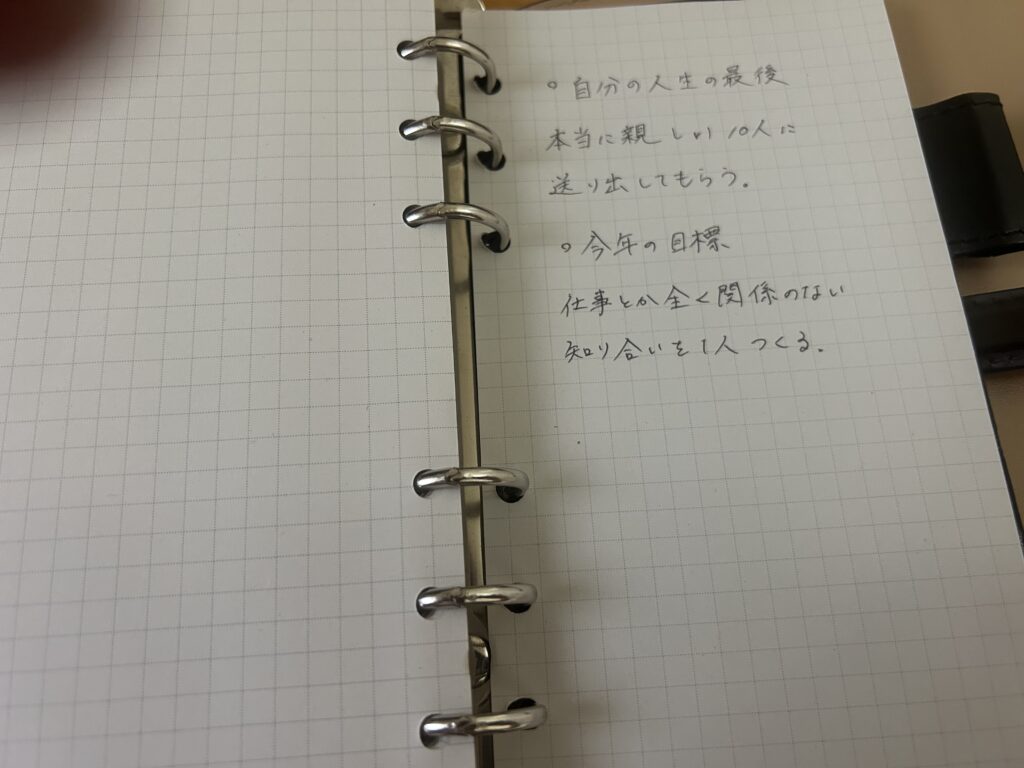 ○ 自分の人生の最後
本当に親しい10人に
送り出してもらう。
○ 今年の目標
仕事とか全く関係のない
知り合いを1人つくる。